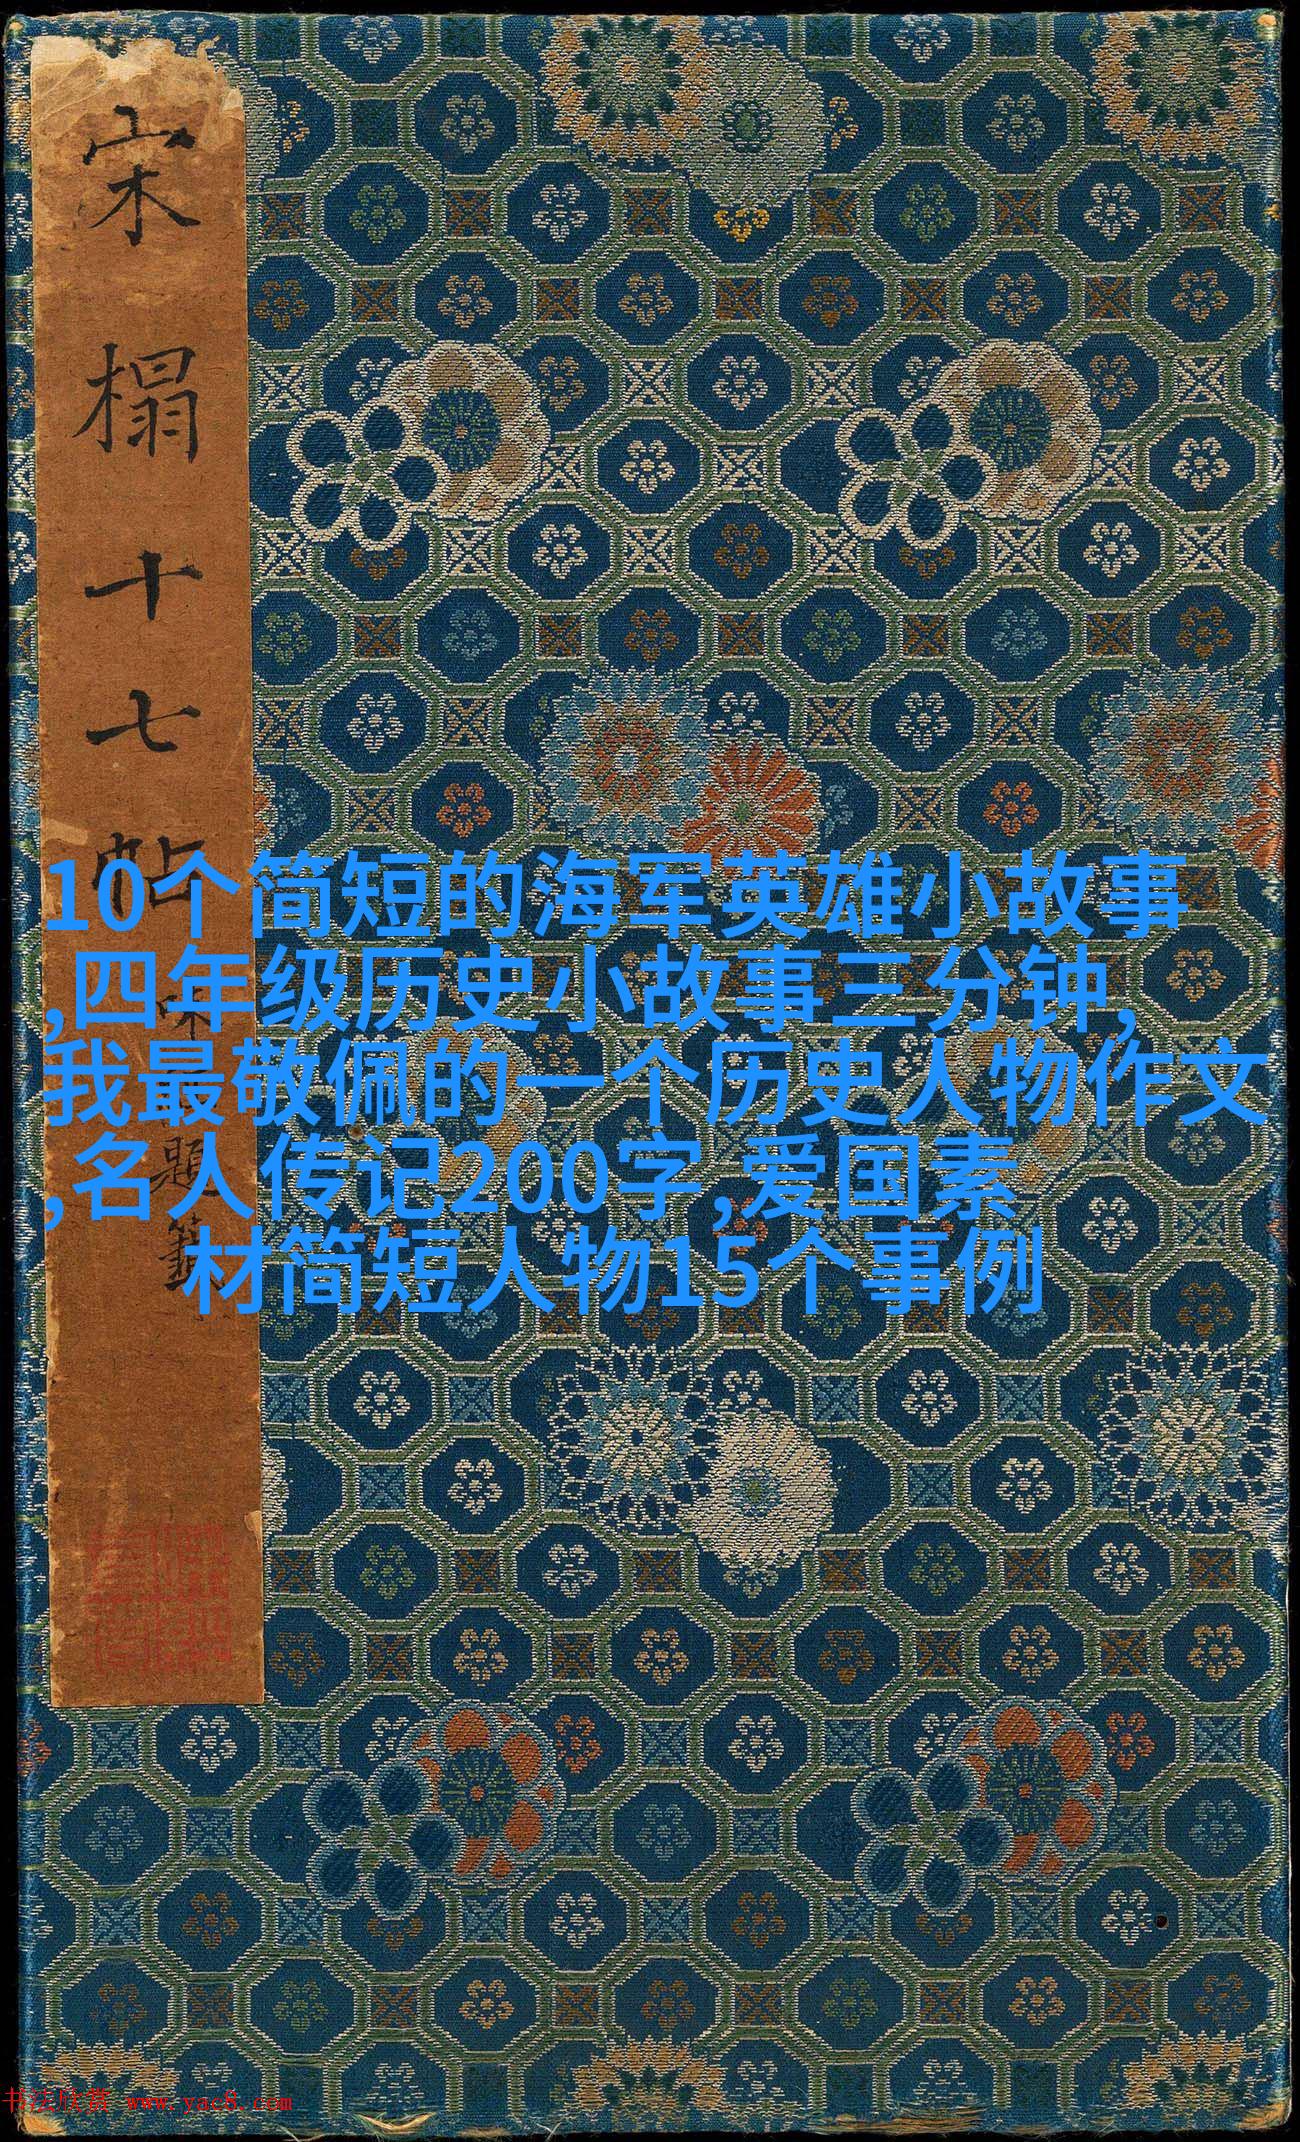 宋搨十七帖
10个简短的海军英雄小故事
,四年级历史小故事三分钟,
我最敬佩的一个历史人物作文
,名人传记200字,爱国素
材简短人物15个事例
题籤
书法欣赏 www.yac8.com